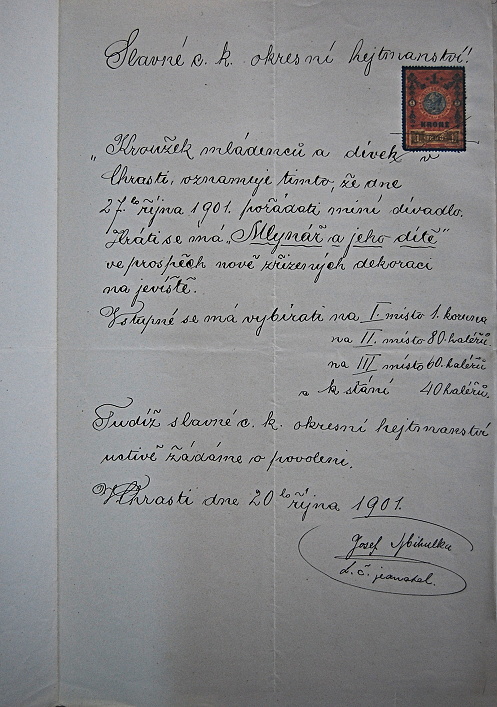 Slavné c. k. okresní hejtmanství!
1
KRONE
„Kroužek mládenců a dívek v
Chrasti, oznamuje tímto, že dne
27.ho října 1901. pořádati míní divadlo.
Hráti se má „Mlynář a jeho dítě“
ve prospěch nově zřízených dekorací
na jeviště.
Vstupné se má vybírati na I. místo 1. koruna
na II. místo 80. haléřů.
na III místo 60. haléřů
a k stání 40 haléřů.
Tudíž slavné c. k. okresní hejtmanství
uctivě žádáme o povolení.
V Chrasti dne 20ho října 1901.
Josef Mikulka
d. č. jednatel.